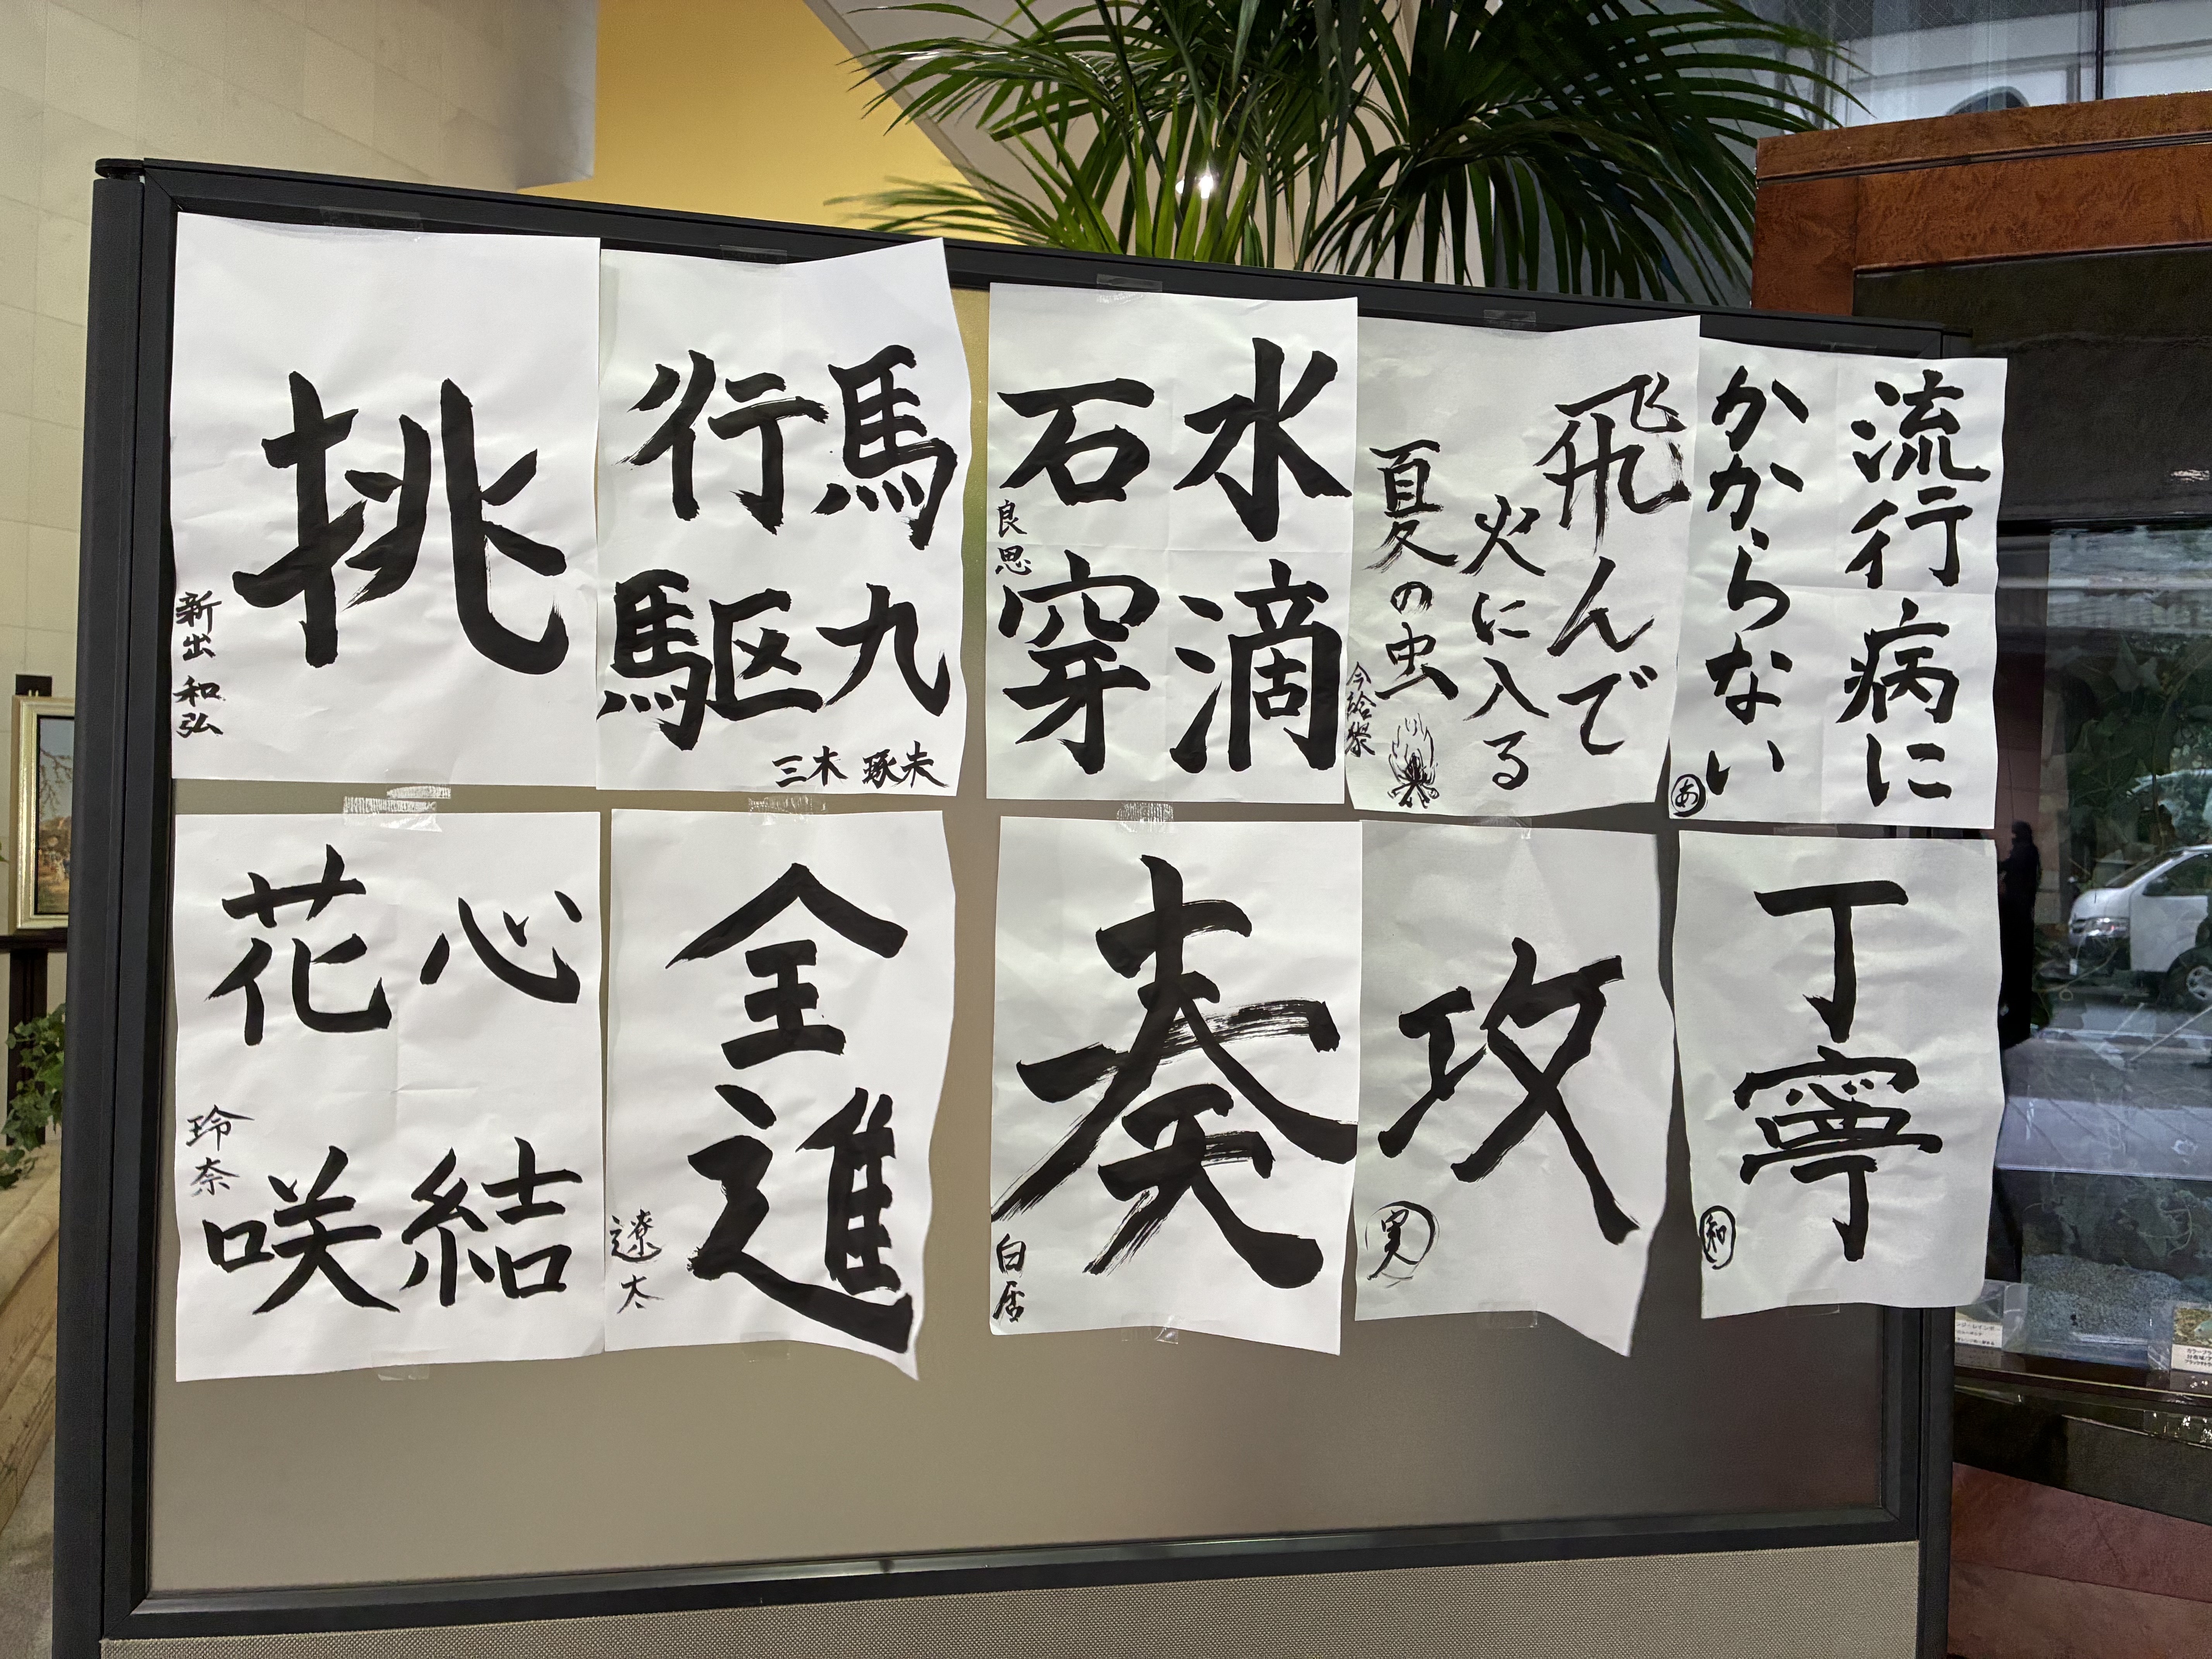 挑
新出 和弘
馬九
行駆
三木
水滴
石穿
良思
飛んで
火に入る
夏の虫
今給黎
流行病に
かからない
あ
心結
花咲
玲奈
全進
遼太
奏
攻
実
丁寧
和